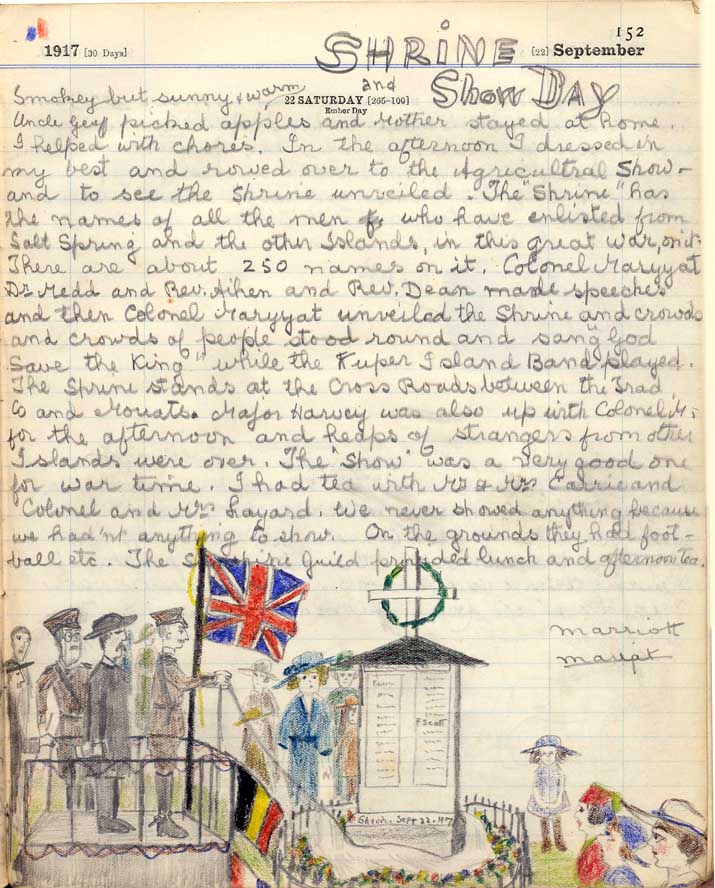 152
1917 [30 Days] SHRINE [22] September
and
22 SATURDAY [265-100] Show DAY
Ember Day
Smokey but sunny & warm
Uncle Geff picked apples and Mother stayed at home.
I helped with chores. In the afternoon I dressed in
my best and rowed over to the Agricultral Show -
and to see the Shrine unveiled. The "Shrine" has
the names of all the men who have enlisted from
Salt Spring and the other Islands, in this great war, on it.
There are about 250 names on it. Colonel Maryyat
Dr Medd and Rev. Aiken and Rev. Dean made speeches
and then Colonel Maryyat unveiled the Shrine and crowds
and crowds of people stood round and sang "God
Save the King" while the Kuper Island Band played.
The Shrine stands at the Cross Roads between the Trad.
Co and Mouats. Major Harvey was also up with Colonel M.
for the afternoon and heaps of strangers from other
Islands were over. The "Show" was a very good one
for war time. I had tea with Mr & Mrs Carrie and
Colonel and Mrs Layard. We never showed anything because
we had'nt anything to show. On the grounds they had foot-
ball etc. The Guild provided lunch and afternoon tea.
Marriott
F Scott
Sept 22. 1917